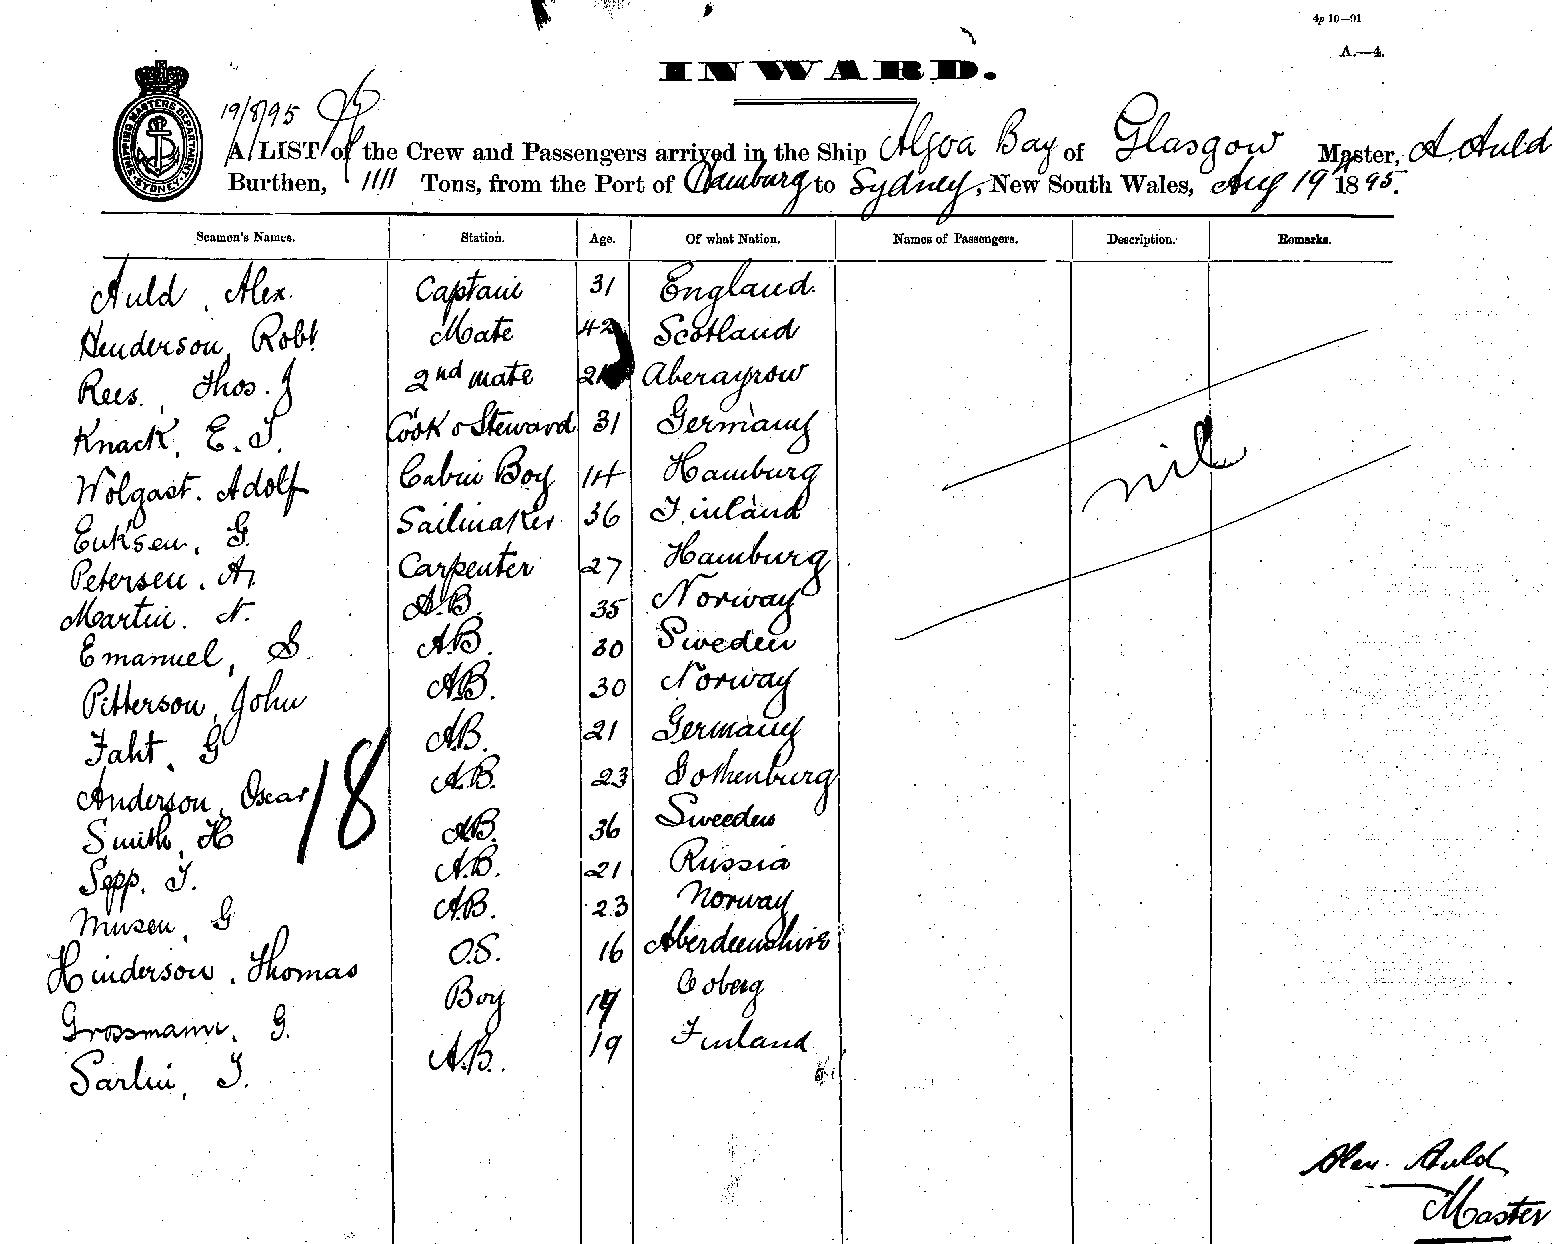 4p 10—91
A.—4.
INWARD.
SHIPPING MASTERS DEPARTMENT SYDNEY
19/8/95
A LIST of the Crew and Passengers arrived in the Ship Algoa Bay of Glasgow Master, A. Auld
Burthen, 1111 Tons, from the Port of Hamburg to Sydney, New South Wales, Aug 19 1895.
Seamen's Names. Station. Age. Of what Nation. Names of Passengers. Description. Remarks.
Auld, Alex. Captain 31 England
Henderson, Robt Mate 42 Scotland
Rees, Thos. J 2nd mate Aberayrow
Knack, E. J. Cook & Steward 31 Germany
Wolgast. Adolf Cabin Boy 14 Hamburg
nil
Eriksen, G. Sailmaker 36 Finland
Petersen. A. Carpenter 27 Hamburg
Martin. N. A.B. 35 Norway
Emanuel, S A.B. 30 Sweden
Pitterson, John A.B. 30 Norway
Faht, G A.B. 21 Germany
Anderson, Oscar A.B. 23 Gothenburg
18
Smith, H A.B. 36 Sweeden
Sepp. J. A.B. 21 Russia
Musen, G A.B. 23 Norway
Hinderson. Thomas O.S. 16 Aberdeenshire
Grossmann, G. Boy Coberg
Sarlin, J. A.B. 19 Finland
Alex. Auld
Master